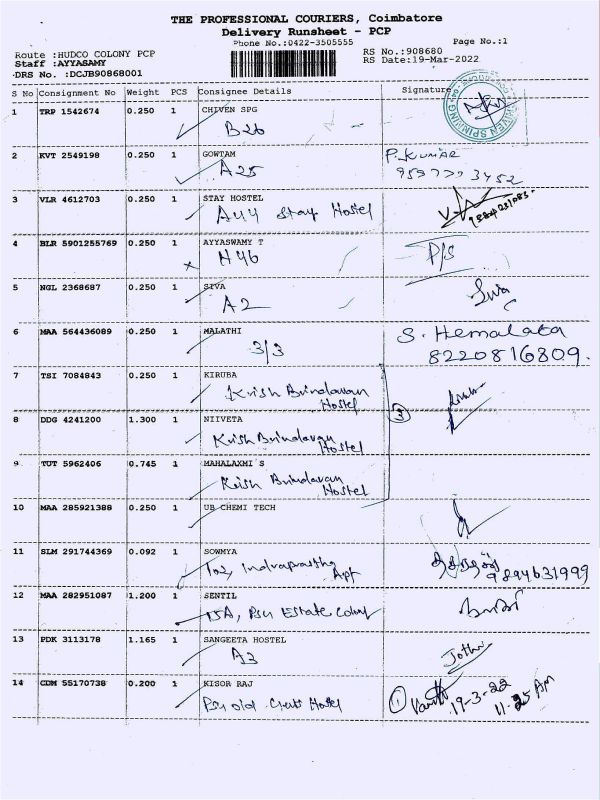 THE PROFESSIONAL COURIERS, Coimbatore
Delivery Runsheet - PCP
Phone No.:0422-3505555
Page No.:1
Route :HUDCO COLONY PCP
RS No.:908680
Staff :AYYASAMY
RS Date:19-Mar-2022
DRS No. :DCJB90868001
S No Consignment No Weight PCS Consignee Details Signature
1 TRP 1542674 0.250 1 CHIVEN SPG
B26
2 KVT 2549198 0.250 1 GOWTAM P. Kumar
A25
3 VLR 4612703 0.250 1 STAY HOSTEL
A44 Stay Hostel
4 BLR 5901255769 0.250 1 AYYASWAMY T
H46 P/S
5 NGL 2368687 0.250 1 SIVA
A2 Siva
6 MAA 564436089 0.250 1 MALATHI S. Hemalata
3/3 8220816809.
7 TSI 7084843 0.250 1 KIRUBA
Krish Brindavan
Hostel
3
8 DDG 4241200 1.300 1 NIIVETA
Krish Brindavan
Hostel
9 TUT 5962406 0.745 1 MAHALAXMI'S
Krish Brindavan
Hostel
10 MAA 285921388 0.250 1 UB CHEMI TECH
11 SLM 291744369 0.092 1 SOWMYA
102, Indraprastha 9894631999
Apt
12 MAA 282951087 1.200 1 SENTIL
15A, PSU Estate Colony
13 PDK 3113178 1.165 1 SANGEETA HOSTEL
A3 Jothi
14 CDM 55170738 0.200 1 KISOR RAJ
PSU old Hostel 1 19-3-22
11.25 AM